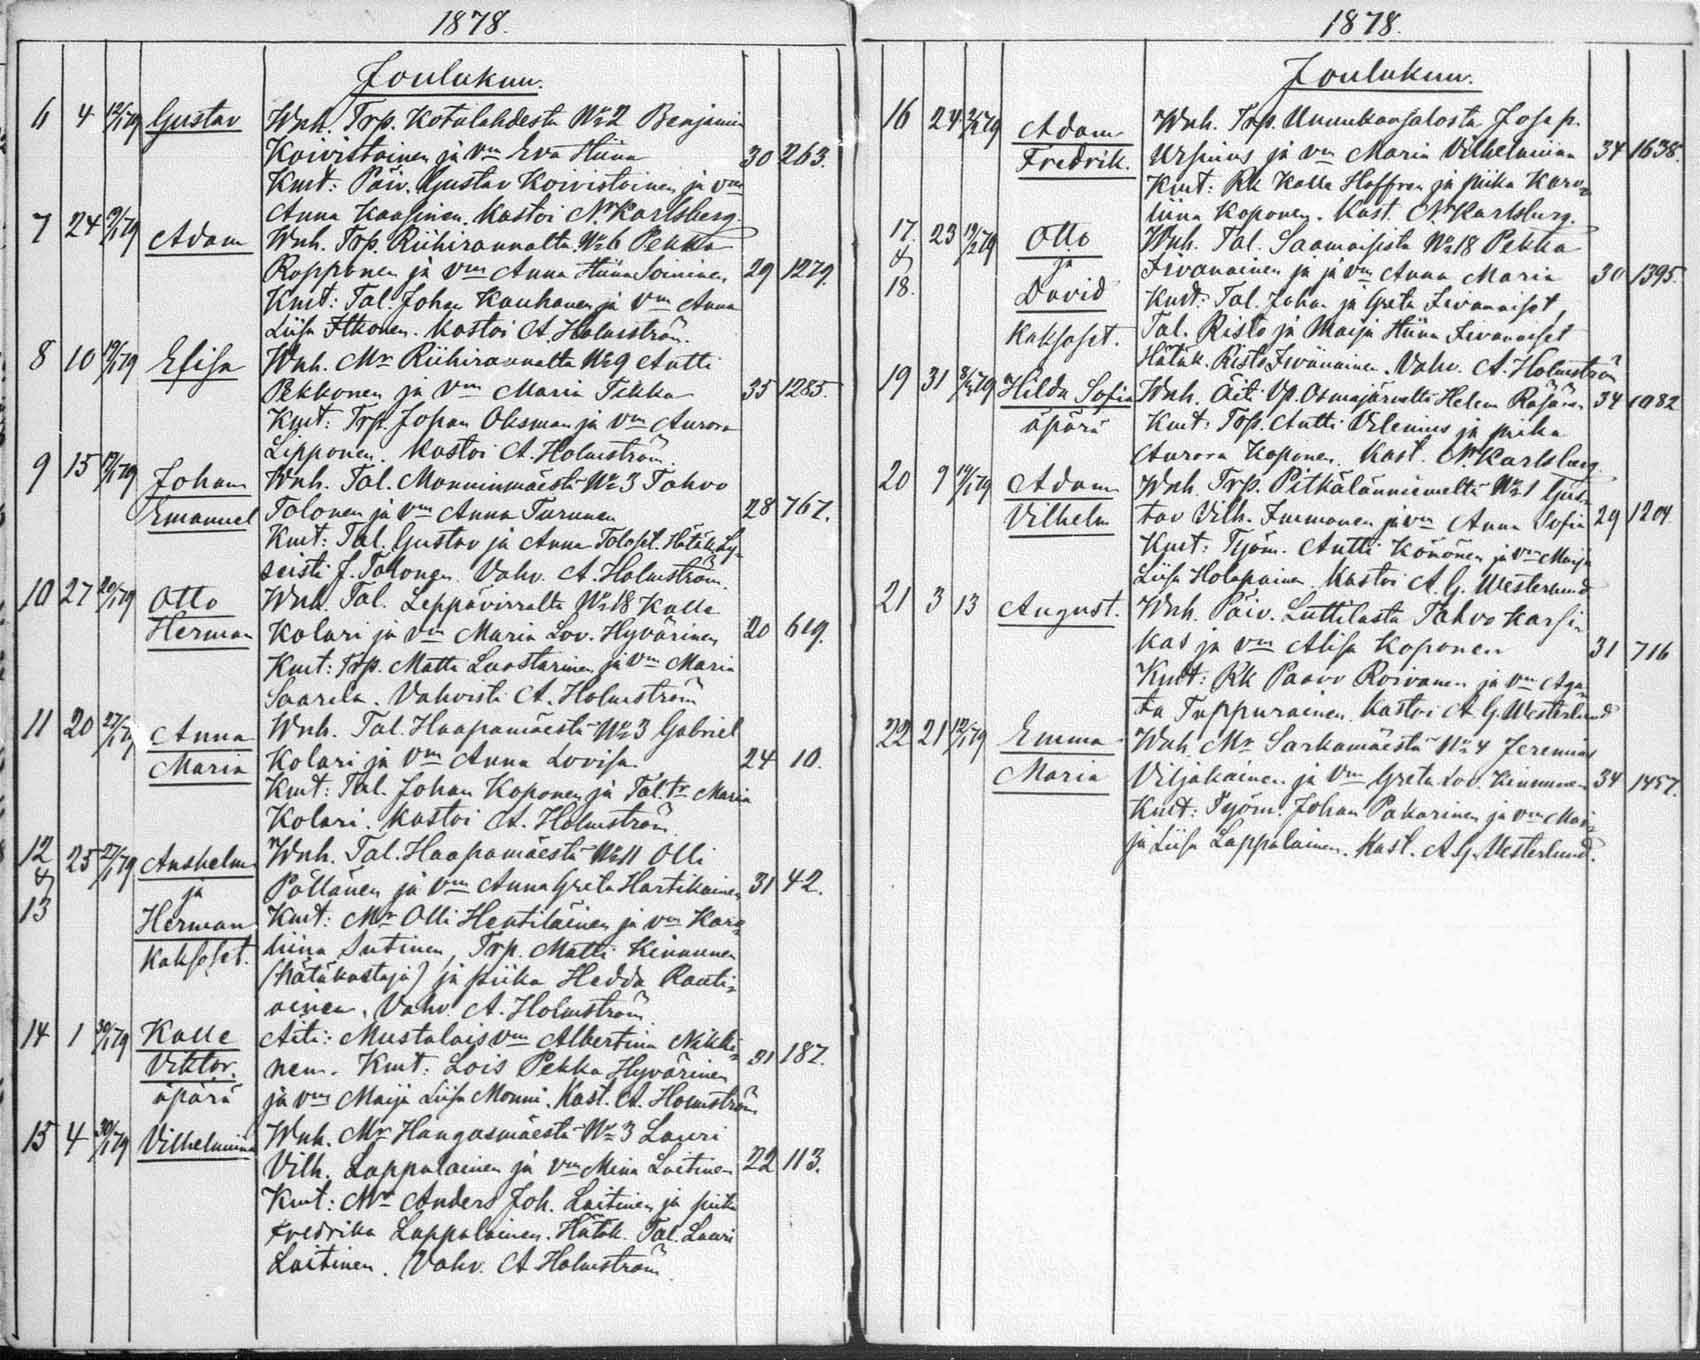 1878.
Joulukuu.
6 4 12/1 79 Gustav Wnh. Trp. Kotalahdesta No 2 Benjamin
Koivistoinen ja vm Eva Hiina 30 263.
Kmt: Päiv. Gustav Koivistoinen ja vm
Anna Kaasinen. Kastoi N. Karlsberg.
7 24 79 Adam Wnh. Trp. Riihirannalta No 6 Pekka
Ropponen ja vm Anna Hiina Soininen 29 1279.
Kmt: Tal. Johan Kauhanen ja vm Anna
Liisa Itkonen. Kastoi A. Holmström.
8 10 19/1 79 Elisa Wnh. Mr Riihirannalta No 9 Antti
Pekkonen ja vm Maria Tikka 35 1285.
Kmt: Trp. Johan Oksman ja vm Aurora
Lipponen. Kastoi A. Holmström.
9 15 19/1 79 Johan Wnh. Tal. Manninmäestä No 3 Tahvo
Emanuel Tolonen ja vm Anna Turunen 28 767.
Kmt: Tal. Gustav ja Anna Toloset. Hätäk. Ly-
seisti J. Tolonen. Vahv. A. Holmström.
10 27 20/1 79 Otto Wnh. Tal. Leppävirralta No 18 Kalle
Herman Kolari ja vm Maria Lov. Hyvärinen 20 619.
Kmt: Trp. Matti Luostarinen ja vm Maria
Saarela. Vahvisti A. Holmström
11 20 27/1 79 Anna Wnh. Tal. Haapamäestä No 3 Gabriel
Maria Kolari ja vm Anna Lovisa 24 10.
Kmt: Tal. Johan Koponen ja Tal. tr Maria
Kolari. Kastoi A. Holmström.
12 25 27/1 79 Anshelm Wnh. Tal. Haapamäestä No 11 Olli
& ja Pöllänen ja vm Anna Greta Hartikainen 31 42.
13 Herman Kmt: Mr Olli Hentiläinen ja vm Karo-
kaksoset. liina Sutinen, Trp. Matti Kinnunen
(Hätäkastaja) ja piika Hedda Rauti-
ainen. Vahv. A. Holmström
14 1 30/1 79 Kalle Äiti: Mustalaisvm Albertina Nikki-
Viktor. nen. Kmt: Lois Pekka Hyvärinen 31 187.
äpärä ja vm Maija Liisa Monni. Kast. A. Holmström
15 4 30/1 79 Vilhelmiina Wnh. Mr Hangasmäestä No 3 Lauri
Vilh. Lappalainen ja vm Mina Laitinen 22 113.
Kmt: Mr Anders Joh. Laitinen ja piika
Fredrika Lappalainen. Hätäk. Tal. Lauri
Laitinen. Vahv. A Holmström
1878.
Joulukuu.
16 24 79 Adam Wnh. Trp. Unnukansalosta Josep.
Fredrik. Ursinus ja vm Maria Vilhelmiina 34 1638.
Kmt: Rk Kalle Hoffren ja piika Karo-
liina Koponen. Kast. N. Karlsberg.
17. 23 19/1 79 Otto Wnh. Tal. Saamaisista No 18 Pekka
& ja Iivanainen ja vm Anna Maria 30 1395.
18. David Kmt: Tal. Johan ja Greta Iivanaiset,
kaksoset. Tal. Risto ja Maija Hiina Iivanaiset
Hätäk. Risto Iivänäinen. Vahv. A. Holmström
19 31 79 Hilda Sofia Wnh. Äiti Vp. Osmajärveltä Helena Räsänen 34 1082
äpärä Kmt: Trp. Antti Vilenius ja piika
Aurora Koponen. Kast. N. Karlsberg.
20 9 19/1 79 Adam Wnh. Trp. Pitkälänniemeltä No 1 Gus-
Vilhelm tav Vilh. Immonen ja vm Anna Sofia 29 1204.
Kmt: Työm. Antti Könönen ja vm Maija
Liisa Holopainen. Kastoi A. G. Westerlund
21 3 13 August. Wnh. Päiv. Luttilasta Tahvo Karsi-
kas ja vm Alisa Koponen 31 716
Kmt: Rk Paavo Roivanen ja vm Aga-
ta Tuppurainen. Kastoi A. G. Westerlund
22 21 12/1 79 Emma Wnh. Mr Sarkamäestä No 4 Jeremias
Maria Viljakainen ja vm Greta Lov. Kinnunen 34 1457.
Kmt: Työm. Johan Pakarinen ja vm Mai-
ja Liisa Lappalainen. Kast. A. G. Westerlund.